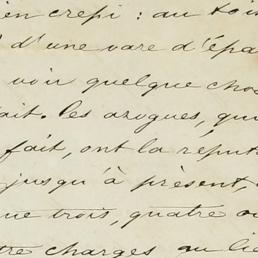 en crepi : au toi
d'une vare d'épa
voir quelque chos
ait. Les azogues, qui
fait, ont la reput
jusqu'à présent,
ue trois, quatre ou
tre charges au lie